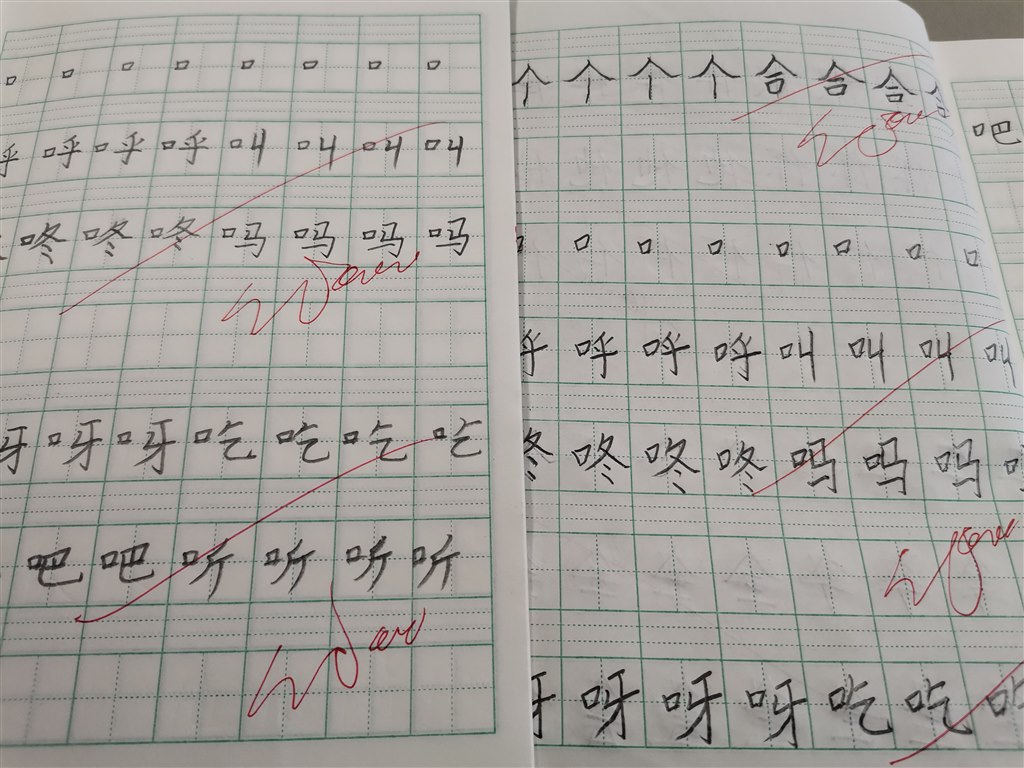 口 口 口 口 口 口 口 口
呼 呼 呼 呼 叫 叫 叫 叫
咚 咚 咚 吗 吗 吗 吗
呀 呀 呀 吃 吃 吃 吃
吧 吧 听 听 听 听
个 个 个 个 合 合 合
口 口 口 口 口 口 口 口
呼 呼 呼 呼 叫 叫 叫 叫
咚 咚 咚 咚 吗 吗 吗
呀 呀 呀 呀 吃 吃 吃
吧